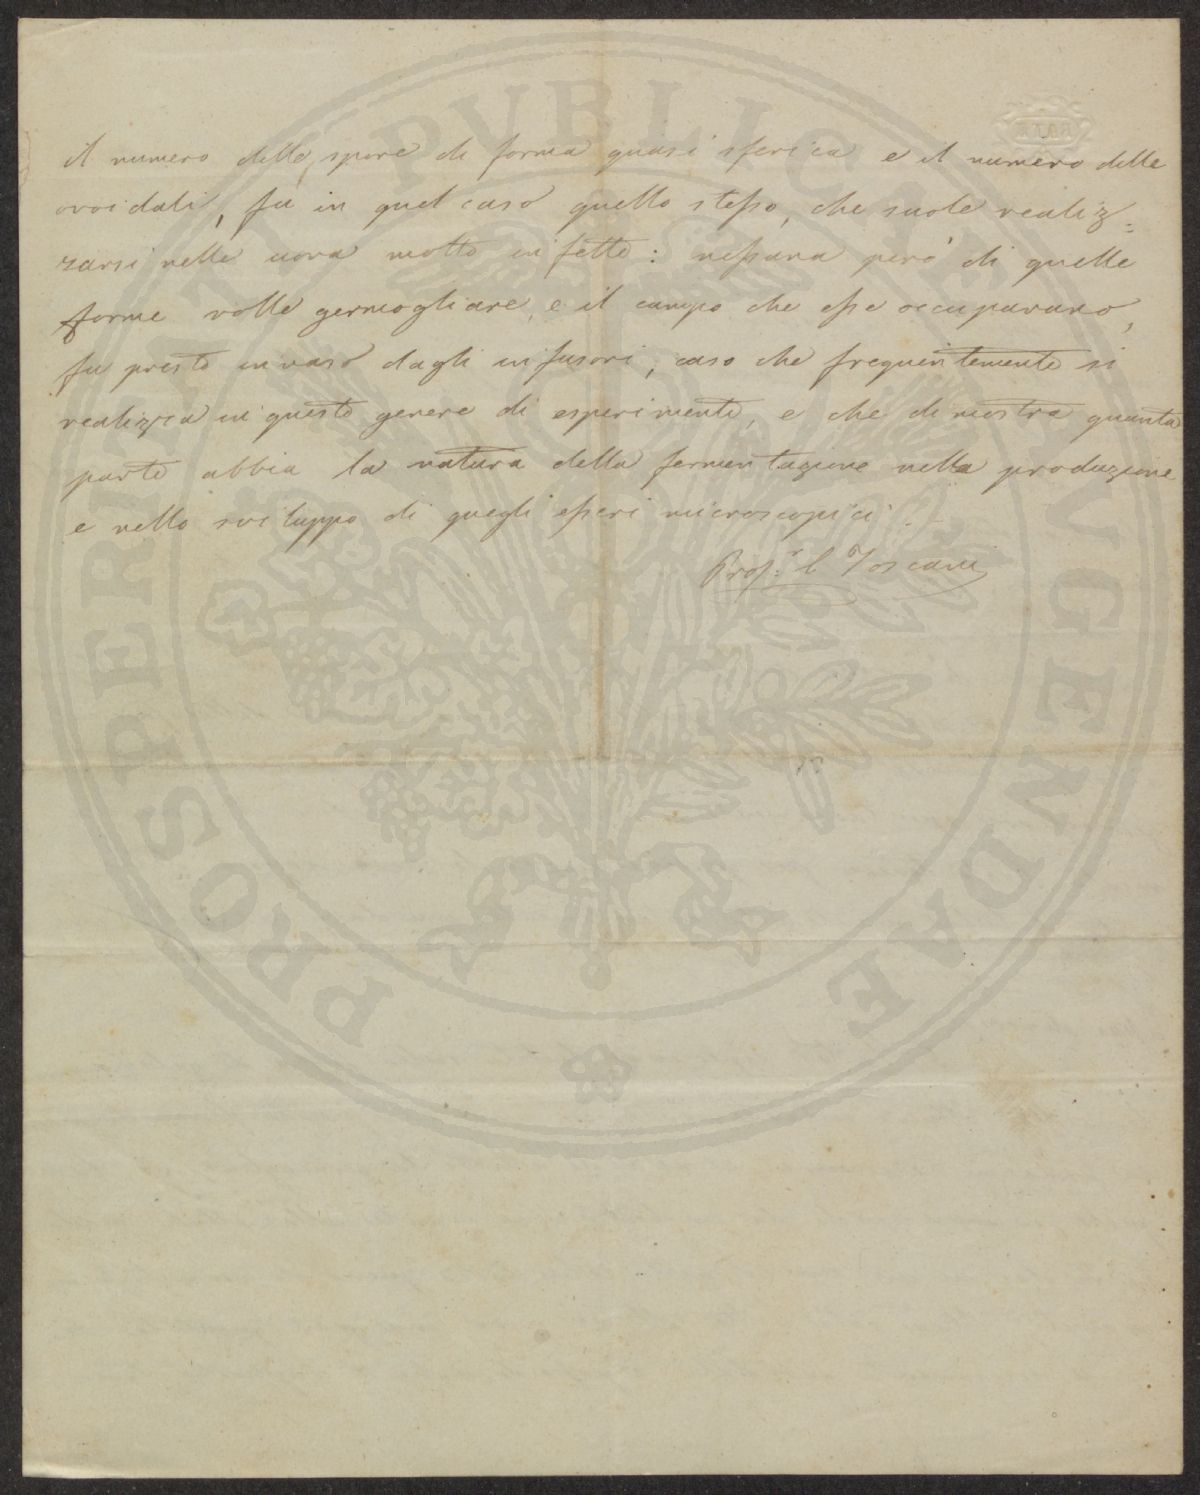 il numero delle spore di forma quasi sferica e il numero delle
ovoidali, fu in quel caso quello stesso, che suole realiz=
zarsi nelle uova molto infette: nessuna però di quelle
forme volle germogliare, e il campo che esse occupavano,
fu presto invaso dagli infusori, caso che frequentemente si
realizza in questo genere di esperimenti, e che dimostra quanta
parte abbia la natura della fermentazione nella produzione
e nello sviluppo di quegli esseri microscopici.
Prof.r C Toscani
PROSPERITATI PVBLICAE AVGENDAE
BATH